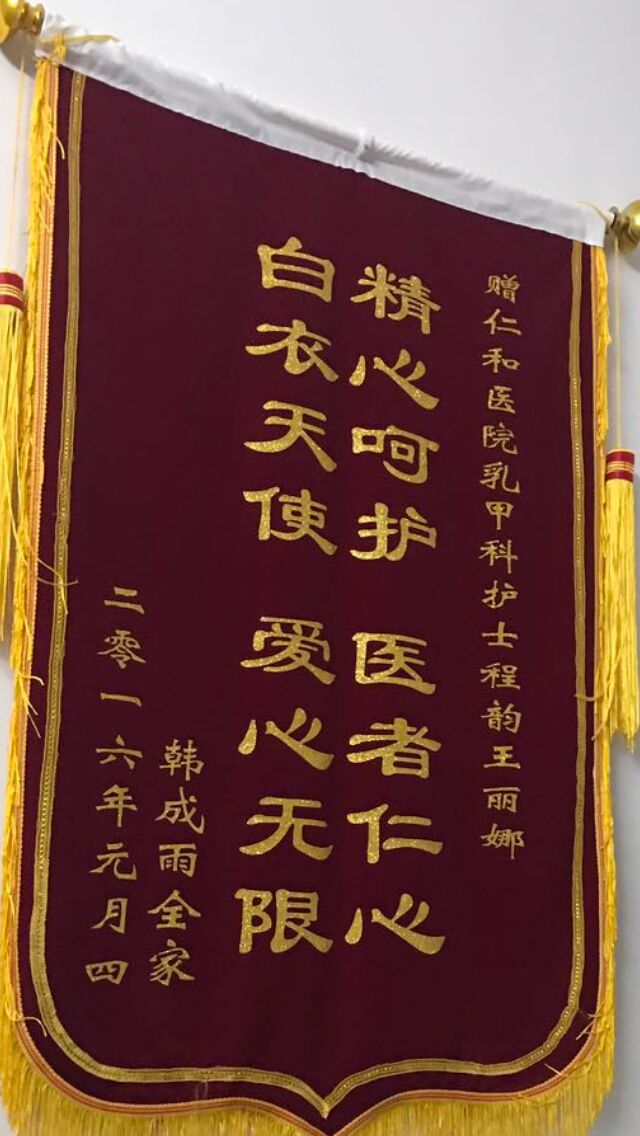 赠仁和医院乳甲科护士程韵王丽娜
精心呵护 医者仁心
白衣天使 爱心无限
韩成雨全家
二零一六年元月四